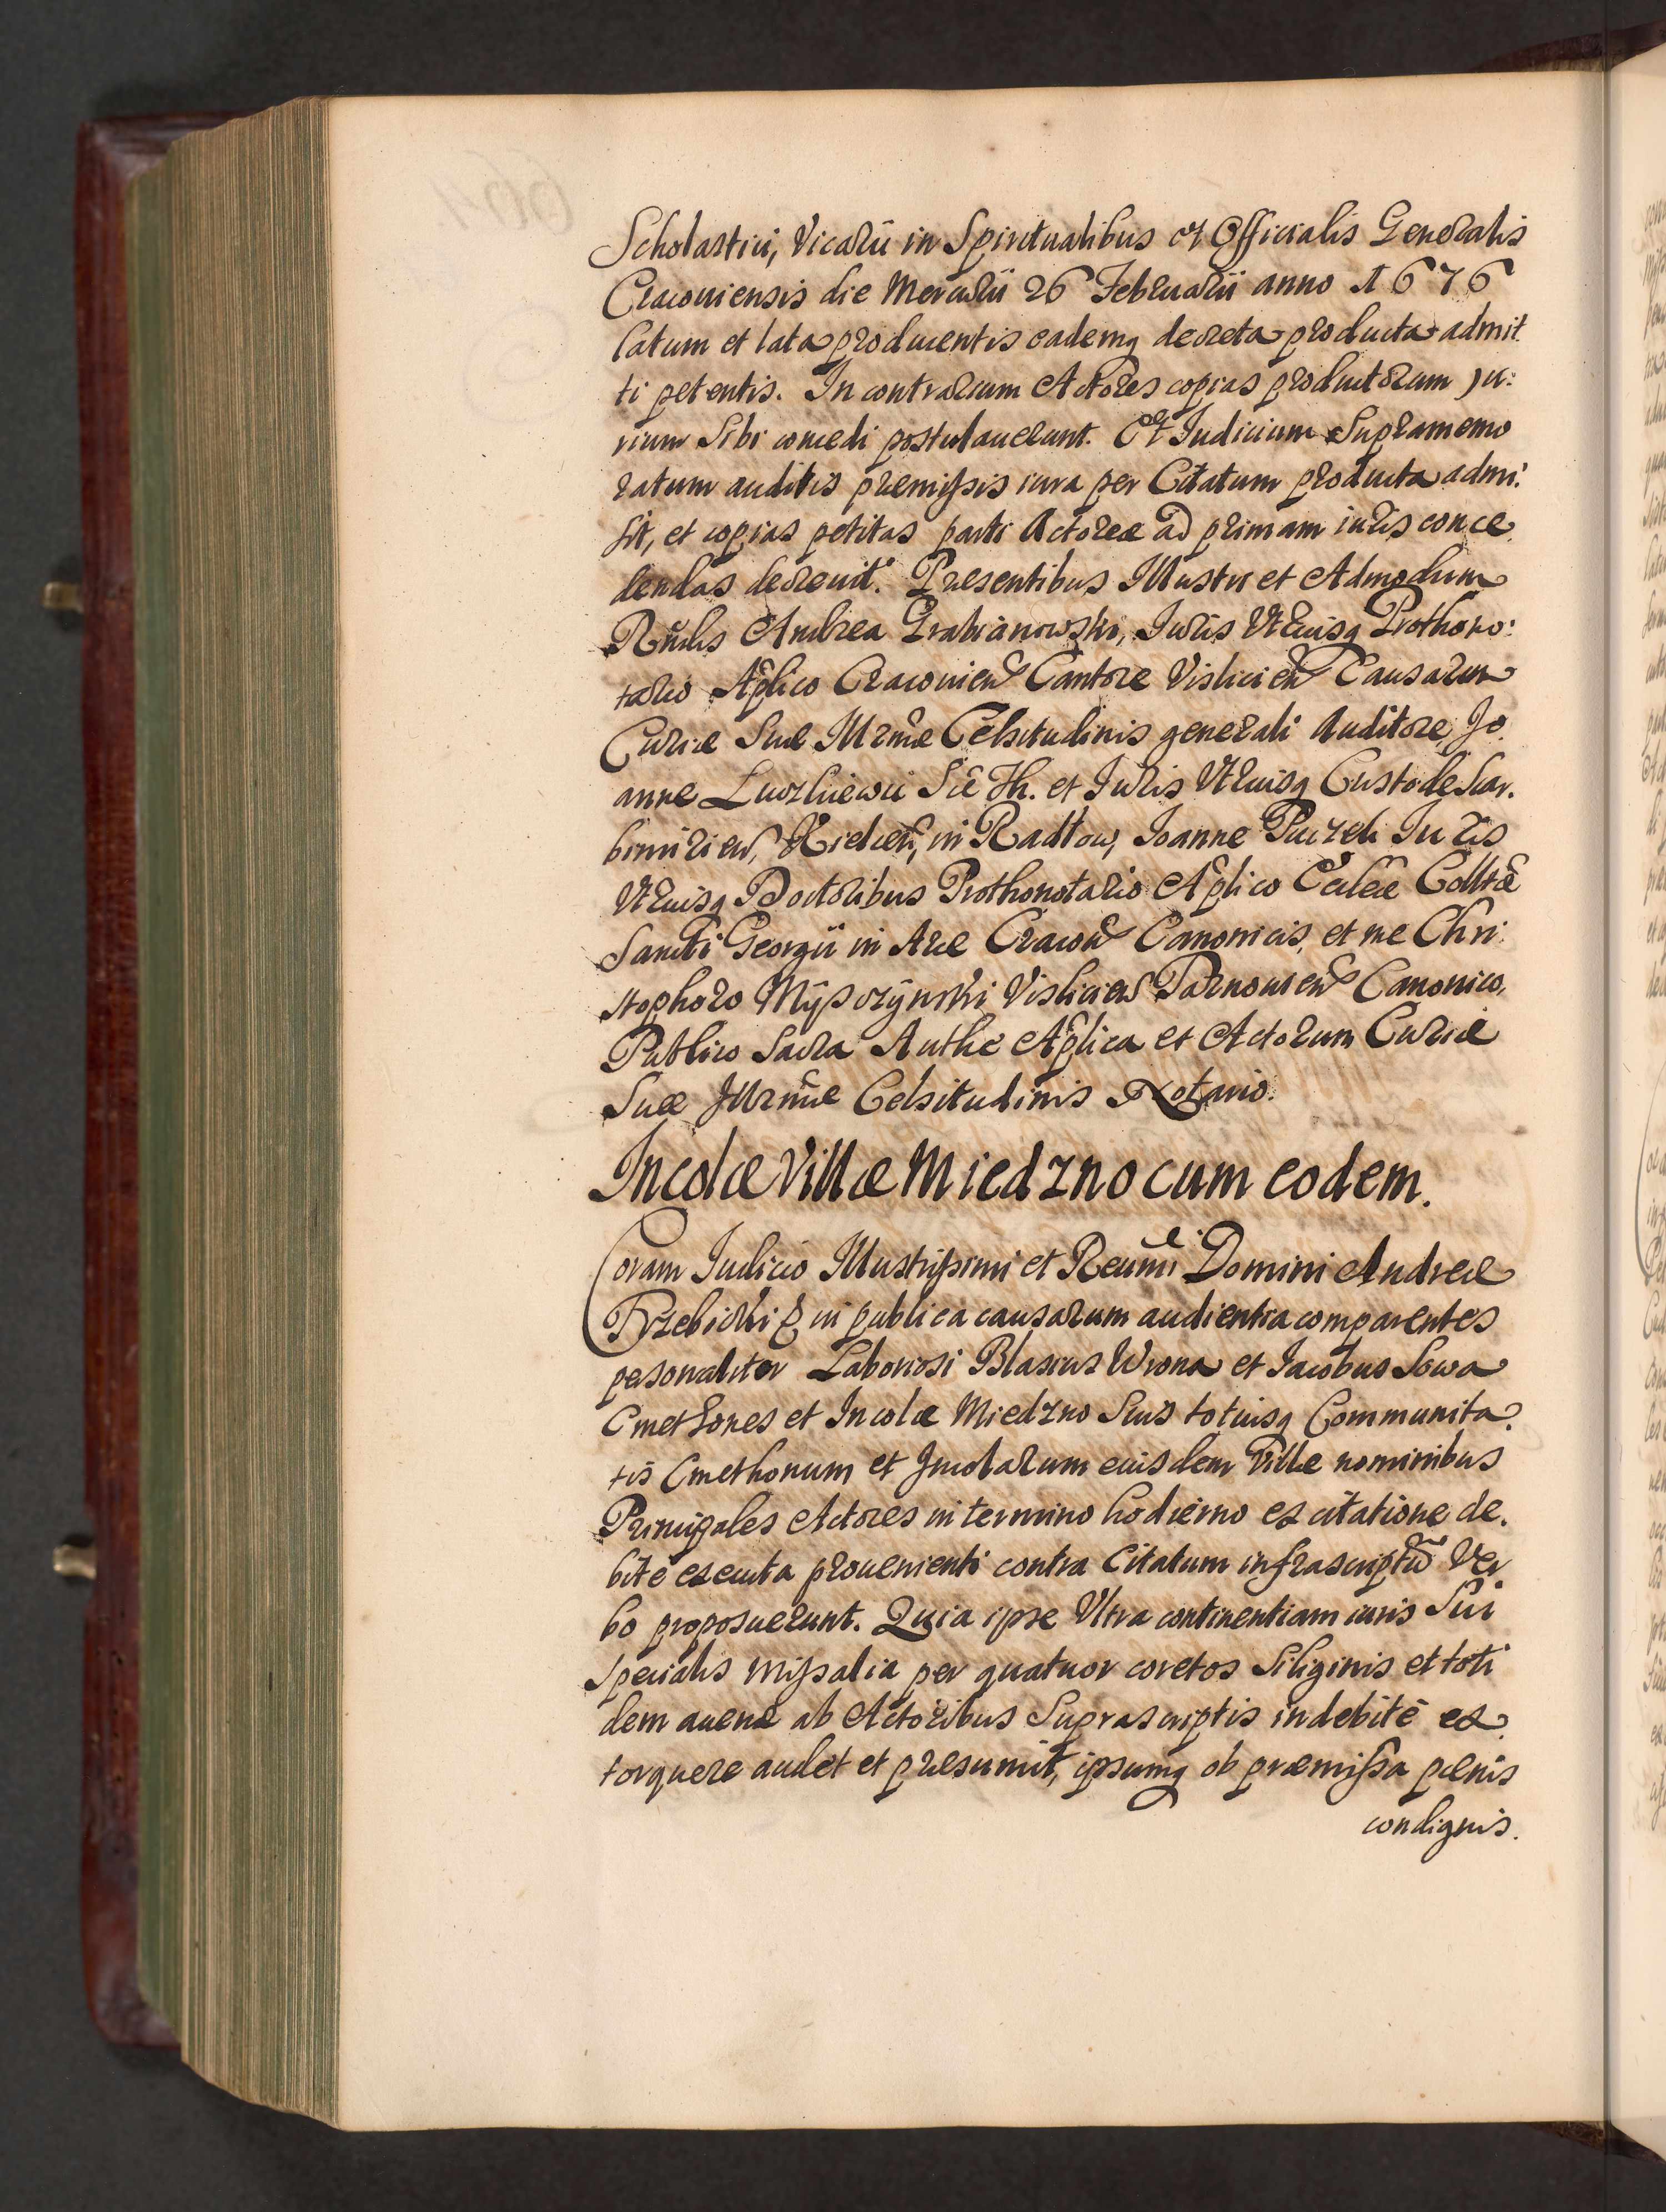 Scholastici, Vicarii in Spiritualibus et Officialis Generalis
Cracouiensis die Mercurii 26 Februarii anno 1676
latum et lata producentis eademq decreta producta admit
ti petentis. In contrarium Actores copias productorum Ju:
rium Sibi concedi postulauerunt. Et Iudicium Supramemo
ratum auditis premissis iura per Citatum producta admi:
sit, et copias petitas parti Actoreæ ad primam iuris conce
dendas decreuit. Præsentibus Illustri et Admodum
Rndis Andrea Grabianowski, Iuris Vtriusq Prothono:
tario Aplico Cracouien Cantore Vislicien Causarum
Curiæ Suæ Illrmæ Celsitudinis generali Auditore, Jo
anne Th. et Iuris Vtriusq Custode Scar.
bimirien, Kielcen, in Radłow, Ioanne Puczek Iuris
Vtriusq Doctoribus Prothonotario Aplico Ecclæ Colltæ
Sancti Georgii in Arce Cracou Canonicis, et me Chri:
stophoro Mysczynski Vislicien Tarnouien Canonico,
Publico Sacra Authe Aplica et Actorum Curiæ
Suæ Illrmæ Celsitudinis Notario.
Incolæ Villæ Miedzno cum eodem.
Coram Iudicio Illustrissimi et Reumi Domini Andreæ
Trzebicki in publica causarum audientia comparentes
personaliter Laboriosi Blasius Wrona et Iacobus Sowa
Cmethones et Incolæ Miedzno Suis totiusq Communita
tis Cmethonum et Incolarum eiusdem Villæ nominibus
Principales Actores in termino hodierno ex citatione de.
bitè executa prouenienti contra Citatum infrascriptũ Ver
bo proposuerunt. Quia ipse Vltra continentiam iuris Sui
specialis missalia per quatuor coretos Siliginis et toti
dem auenæ ab Actoribus Suprascriptis indebitè ex
torquere audet et præsumit, ipsumq ob præmissa pænis
condignis.